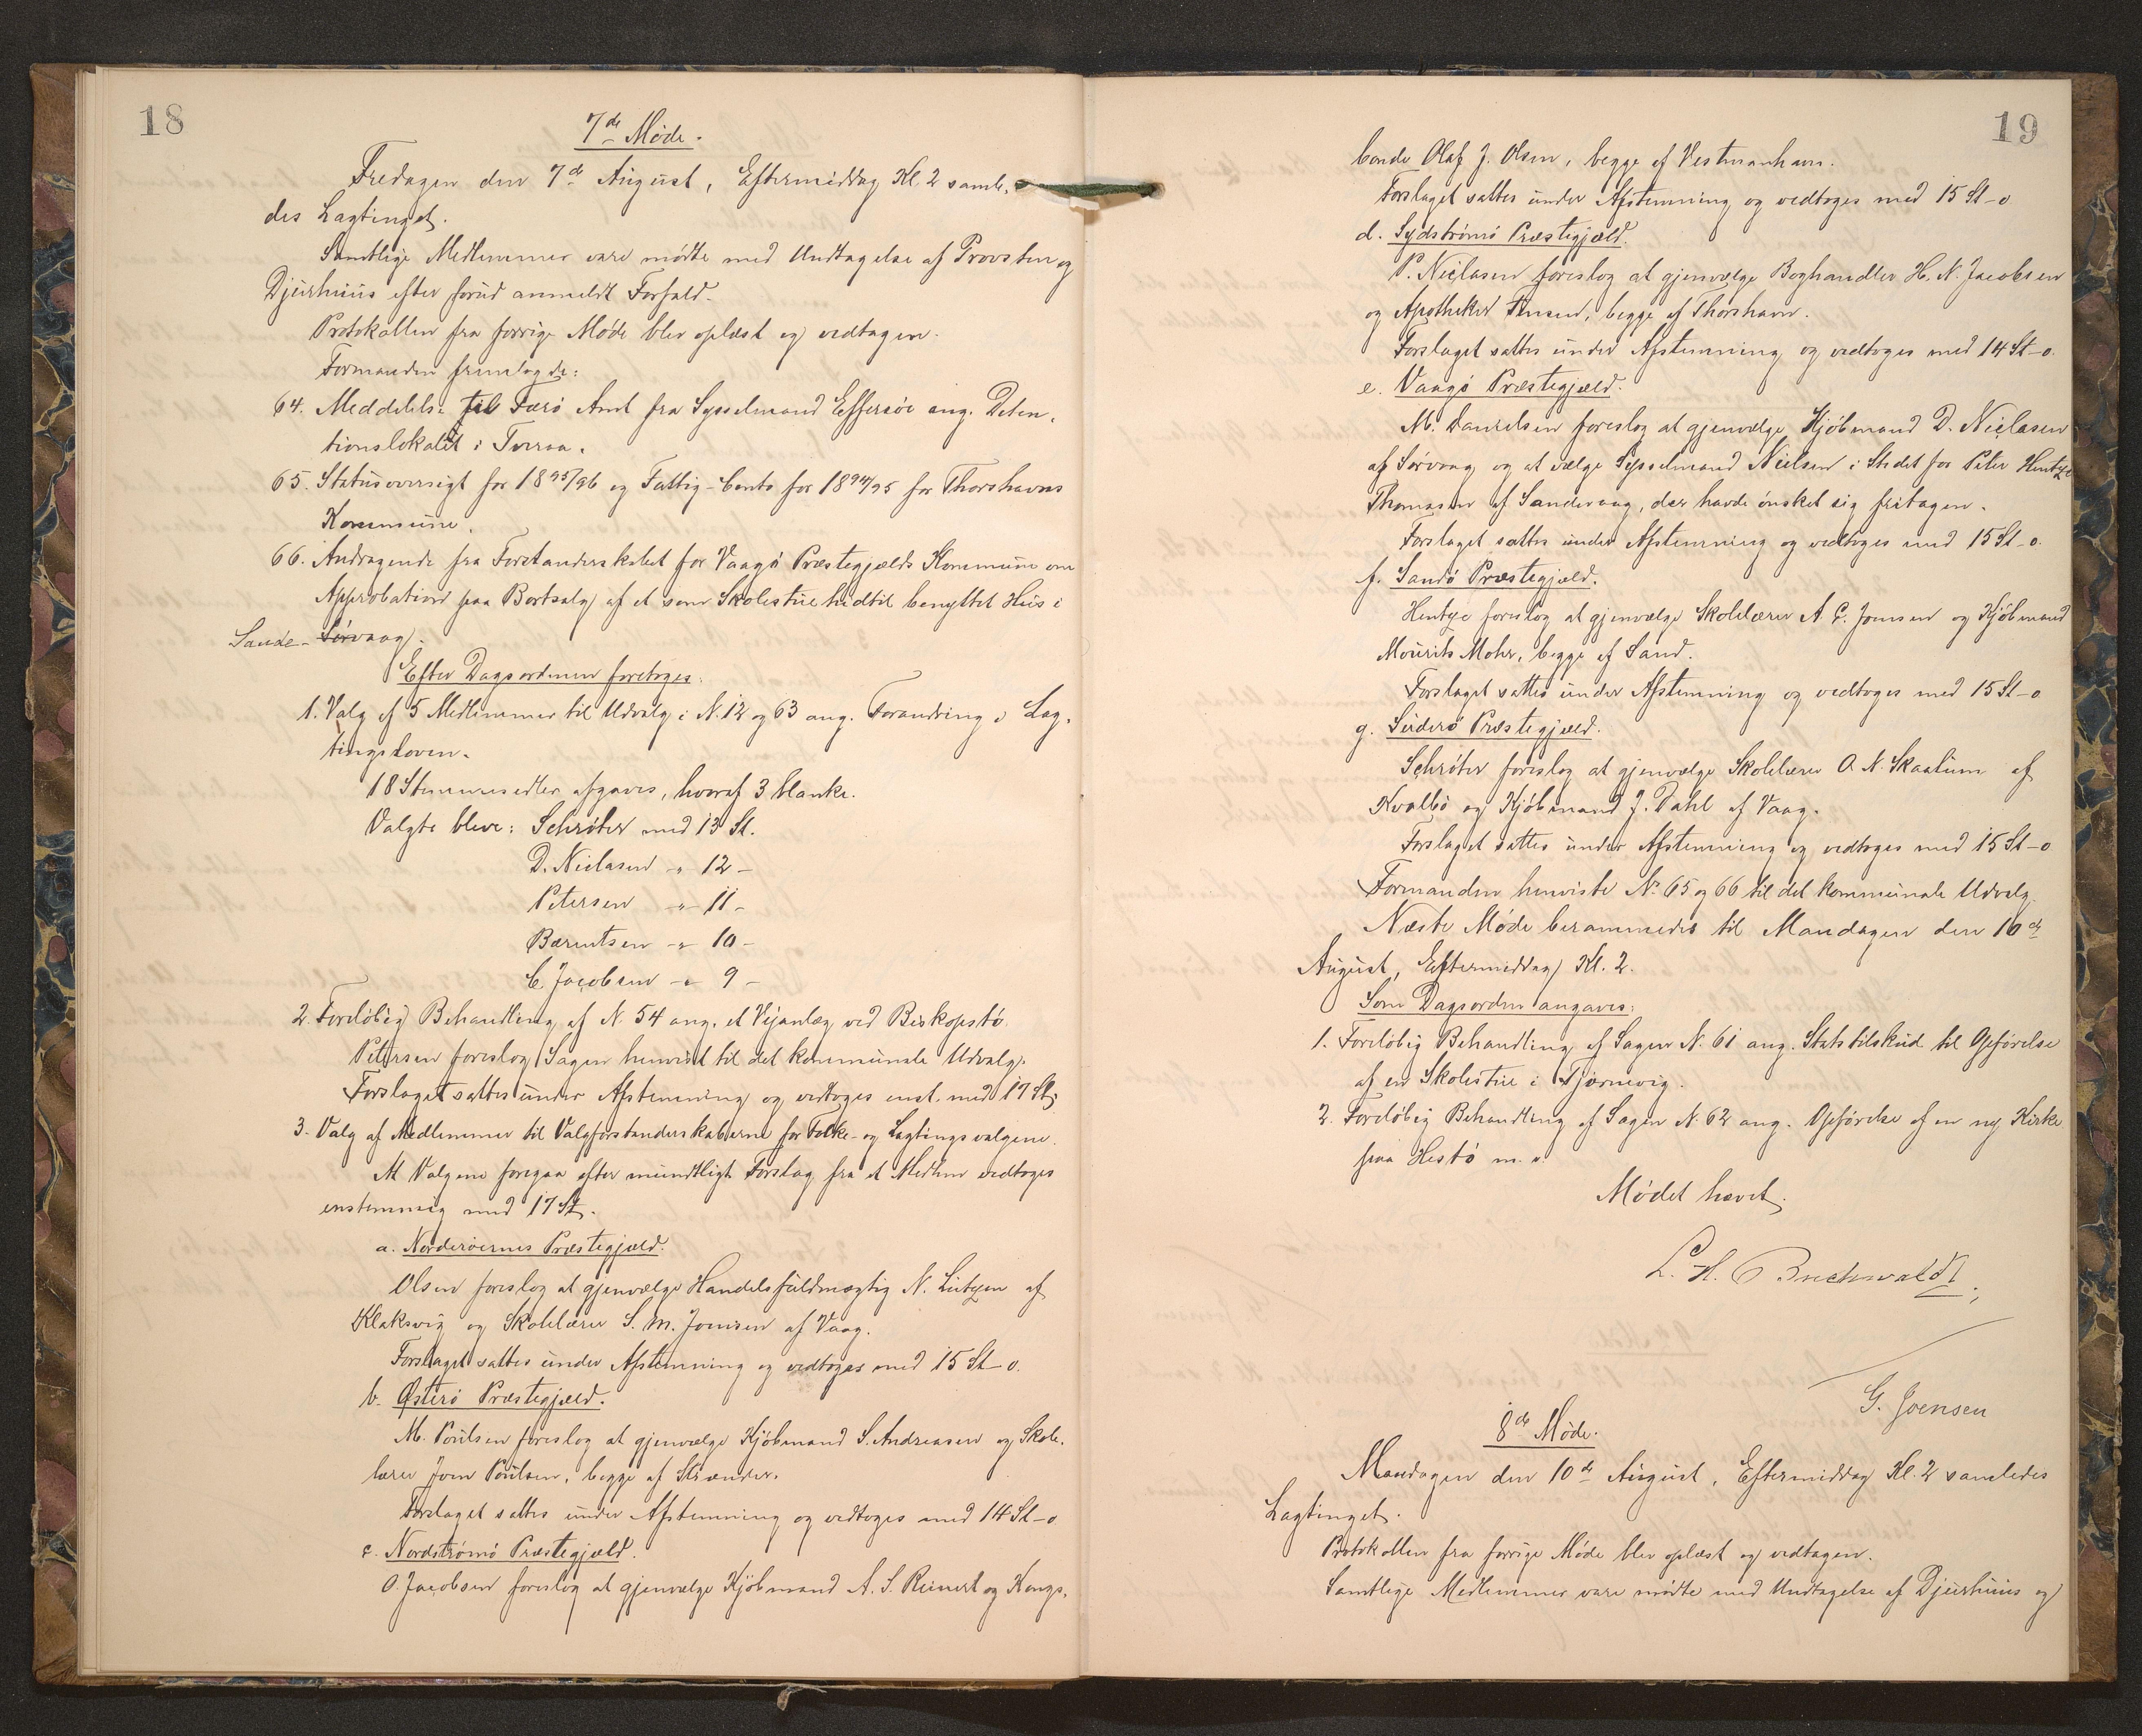 18
7de Møde.
Fredagen den 7de August, Eftermiddag Kl. 2 samle-
des Lagtinget.
Samtlige Medlemmer vare mødte med Undtagelse af Provsten og
Djurhuus efter forud anmeldt Forfald.
Protokollen fra forrige Møde blev oplæst og vedtagen.
Formanden fremlagde:
64. Meddelelse til Færø Amt fra Sysselmand Effersøe ang. Deten-
tionslokalet i Tveraa.
65. Statusoversigt for 1895/96 og Fattig-Conto for 1894/95 for Thorshavns
Kommune.
66. Andragende fra Forstanderskabet for Vaagø Præstegjælds Kommune om
Approbation paa Bortsalg af et som Skolestue hidtil benyttet Hus i
Sande- Sørvaag.
Efter Dagsordenen foretoges:
1. Valg af 5 Medlemmer til Udvalg i N. 12 og 63 ang. Forandring i Lag-
tingsloven.
18 Stemmesedler afgaves, hvoraf 3 blanke.
Valgte bleve: Schrøter med 13 St.
D. Niclasen -"- 12 -
Petersen -"- 11 -
Bærentsen -"- 10 -
C. Jacobsen -"- 9 -
2. Foreløbig Behandling af N. 54 ang. et Vejanlæg ved Biskopstø.
Petersen foreslog Sagen henvist til det kommunale Udvalg.
Forslaget sattes under Afstemning og vedtoges enst. med 17 St.
3. Valg af Medlemmer til Valgforstanderskaberne for Folke- og Lagtingsvalgene.
At Valgene foregaa efter mundtligt Forslag fra et Medlem vedtoges
enstemmig med 17 St.
a. Norderøernes Præstegjæld.
Olsen foreslog at gjenvælge Handelsfuldmægtig N. Lützen af
Klaksvig og Skolelærer S. M. Joensen af Vaag.
Forslaget sattes under Afstemning og vedtoges med 15 St - 0.
b. Østerø Præstegjæld.
M. Poulsen foreslog at gjenvælge Kjøbmand S. Andreasen og Skole-
lærer Joen Poulsen, begge af Strænder.
Forslaget sattes under Afstemning og vedtoges med 14 St - 0
c. Nordstrømø Præstegjæld.
O. Jacobsen foreslog at gjenvælge Kjøbmand A. S. Reinert og Kongs-
19
bonde Olaf J. Olsen, begge af Vestmanhavn.
Forslaget sattes under Afstemning og vedtoges med 15 St - 0
d. Sydstrømø Præstegjæld.
P. Niclasen foreslog at gjenvælge Boghandler H. N. Jacobsen
og Apotheker Jensen, begge af Thorshavn.
Forslaget sattes under Afstemning og vedtoges med 14 St - 0.
e. Vaagø Præstegjæld.
M. Danielsen foreslog at gjenvælge Kjøbmand D. Niclasen
af Sørvaag og at vælge Sysselmand Nielsen i Stedet for Peter Hentze
Thomasen af Sandevaag, der havde ønsket sig fritagen.
Forslaget sattes under Afstemning og vedtoges med 15 St - 0.
f. Sandø Præstegjæld.
Hentze foreslog at gjenvælge Skolelærer A. C. Joensen og Kjøbmand
Mourits Mohr, begge af Sand.
Forslaget sattes under Afstemning og vedtoges med 15 St - 0
g. Suderø Præstegjæld.
Schrøter foreslog at gjenvælge Skolelærer O. N. Skaalum af
Kvalbø og Kjøbmand J. Dahl af Vaag.
Forslaget sattes under Afstemning og vedtoges med 15 St - 0
Formanden henviste No. 65 og 66 til det kommunale Udvalg.
Næste Møde berammedes til Mandagen den 10de
August, Eftermiddag Kl. 2.
Som Dagsorden angaves:
1. Foreløbig Behandling af Sagen N. 61 ang. Statstilskud til Opførelse
af en Skolestue i Tjørnevig.
2. Foreløbig Behandling af Sagen N. 62 ang. Opførelse af en ny Kirke
paa Hestø m. v.
Mødet hævet.
L. H. Buchwaldt
G. Joensen
8de Møde.
Mandagen den 10de August, Eftermiddag Kl. 2 samledes
Lagtinget.
Protokollen fra forrige Møde blev oplæst og vedtagen.
Samtlige Medlemmer vare mødte med Undtagelse af Djurhuus og